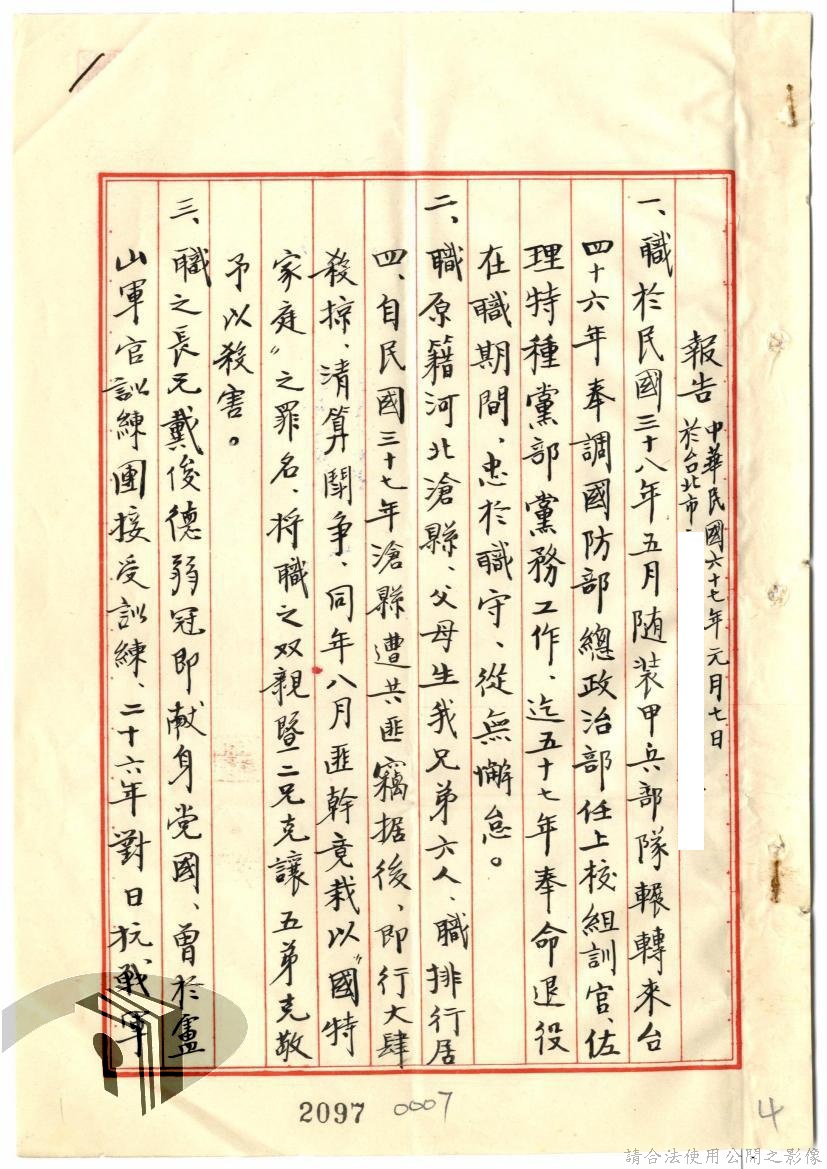 報告 中華民國六十七年元月七日
於台北市
一、職於民國三十八年五月随装甲兵部隊輾轉來台
四十六年奉調國防部總政治部任上校組訓官、佐
理特種黨部黨務工作、迄五十七年奉命退役
在職期間、忠於職守、從無懈怠。
二、職原籍河北滄縣、父母生我兄弟六人、職排行居
四、自民國三十七年滄縣遭共匪竊据後、即行大肆
殺掠、清算鬪争、同年八月匪幹竟栽以“國特
家庭”之罪名、将職之双親暨二兄克讓五弟克敬
予以殺害。
三、職之長兄戴俊德弱冠即献身党國、曾於盧
山軍官訓練團接受訓練、二十六年對日抗戰軍
2097 0007
4
請合法使用公開之影像